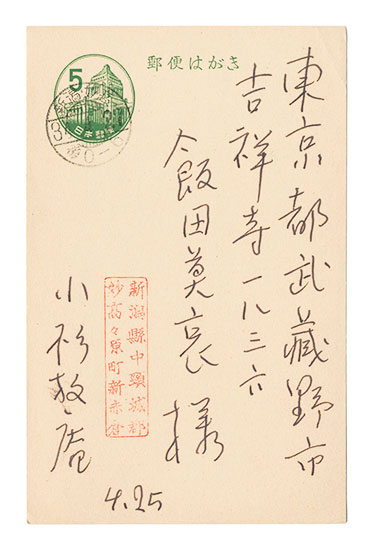 郵便はがき
5
日本郵便
東京都武蔵野市
吉祥寺一八三六
飯田莫哀様
新潟縣中頸城郡
妙高々原町新赤倉
小杉放庵
4.25